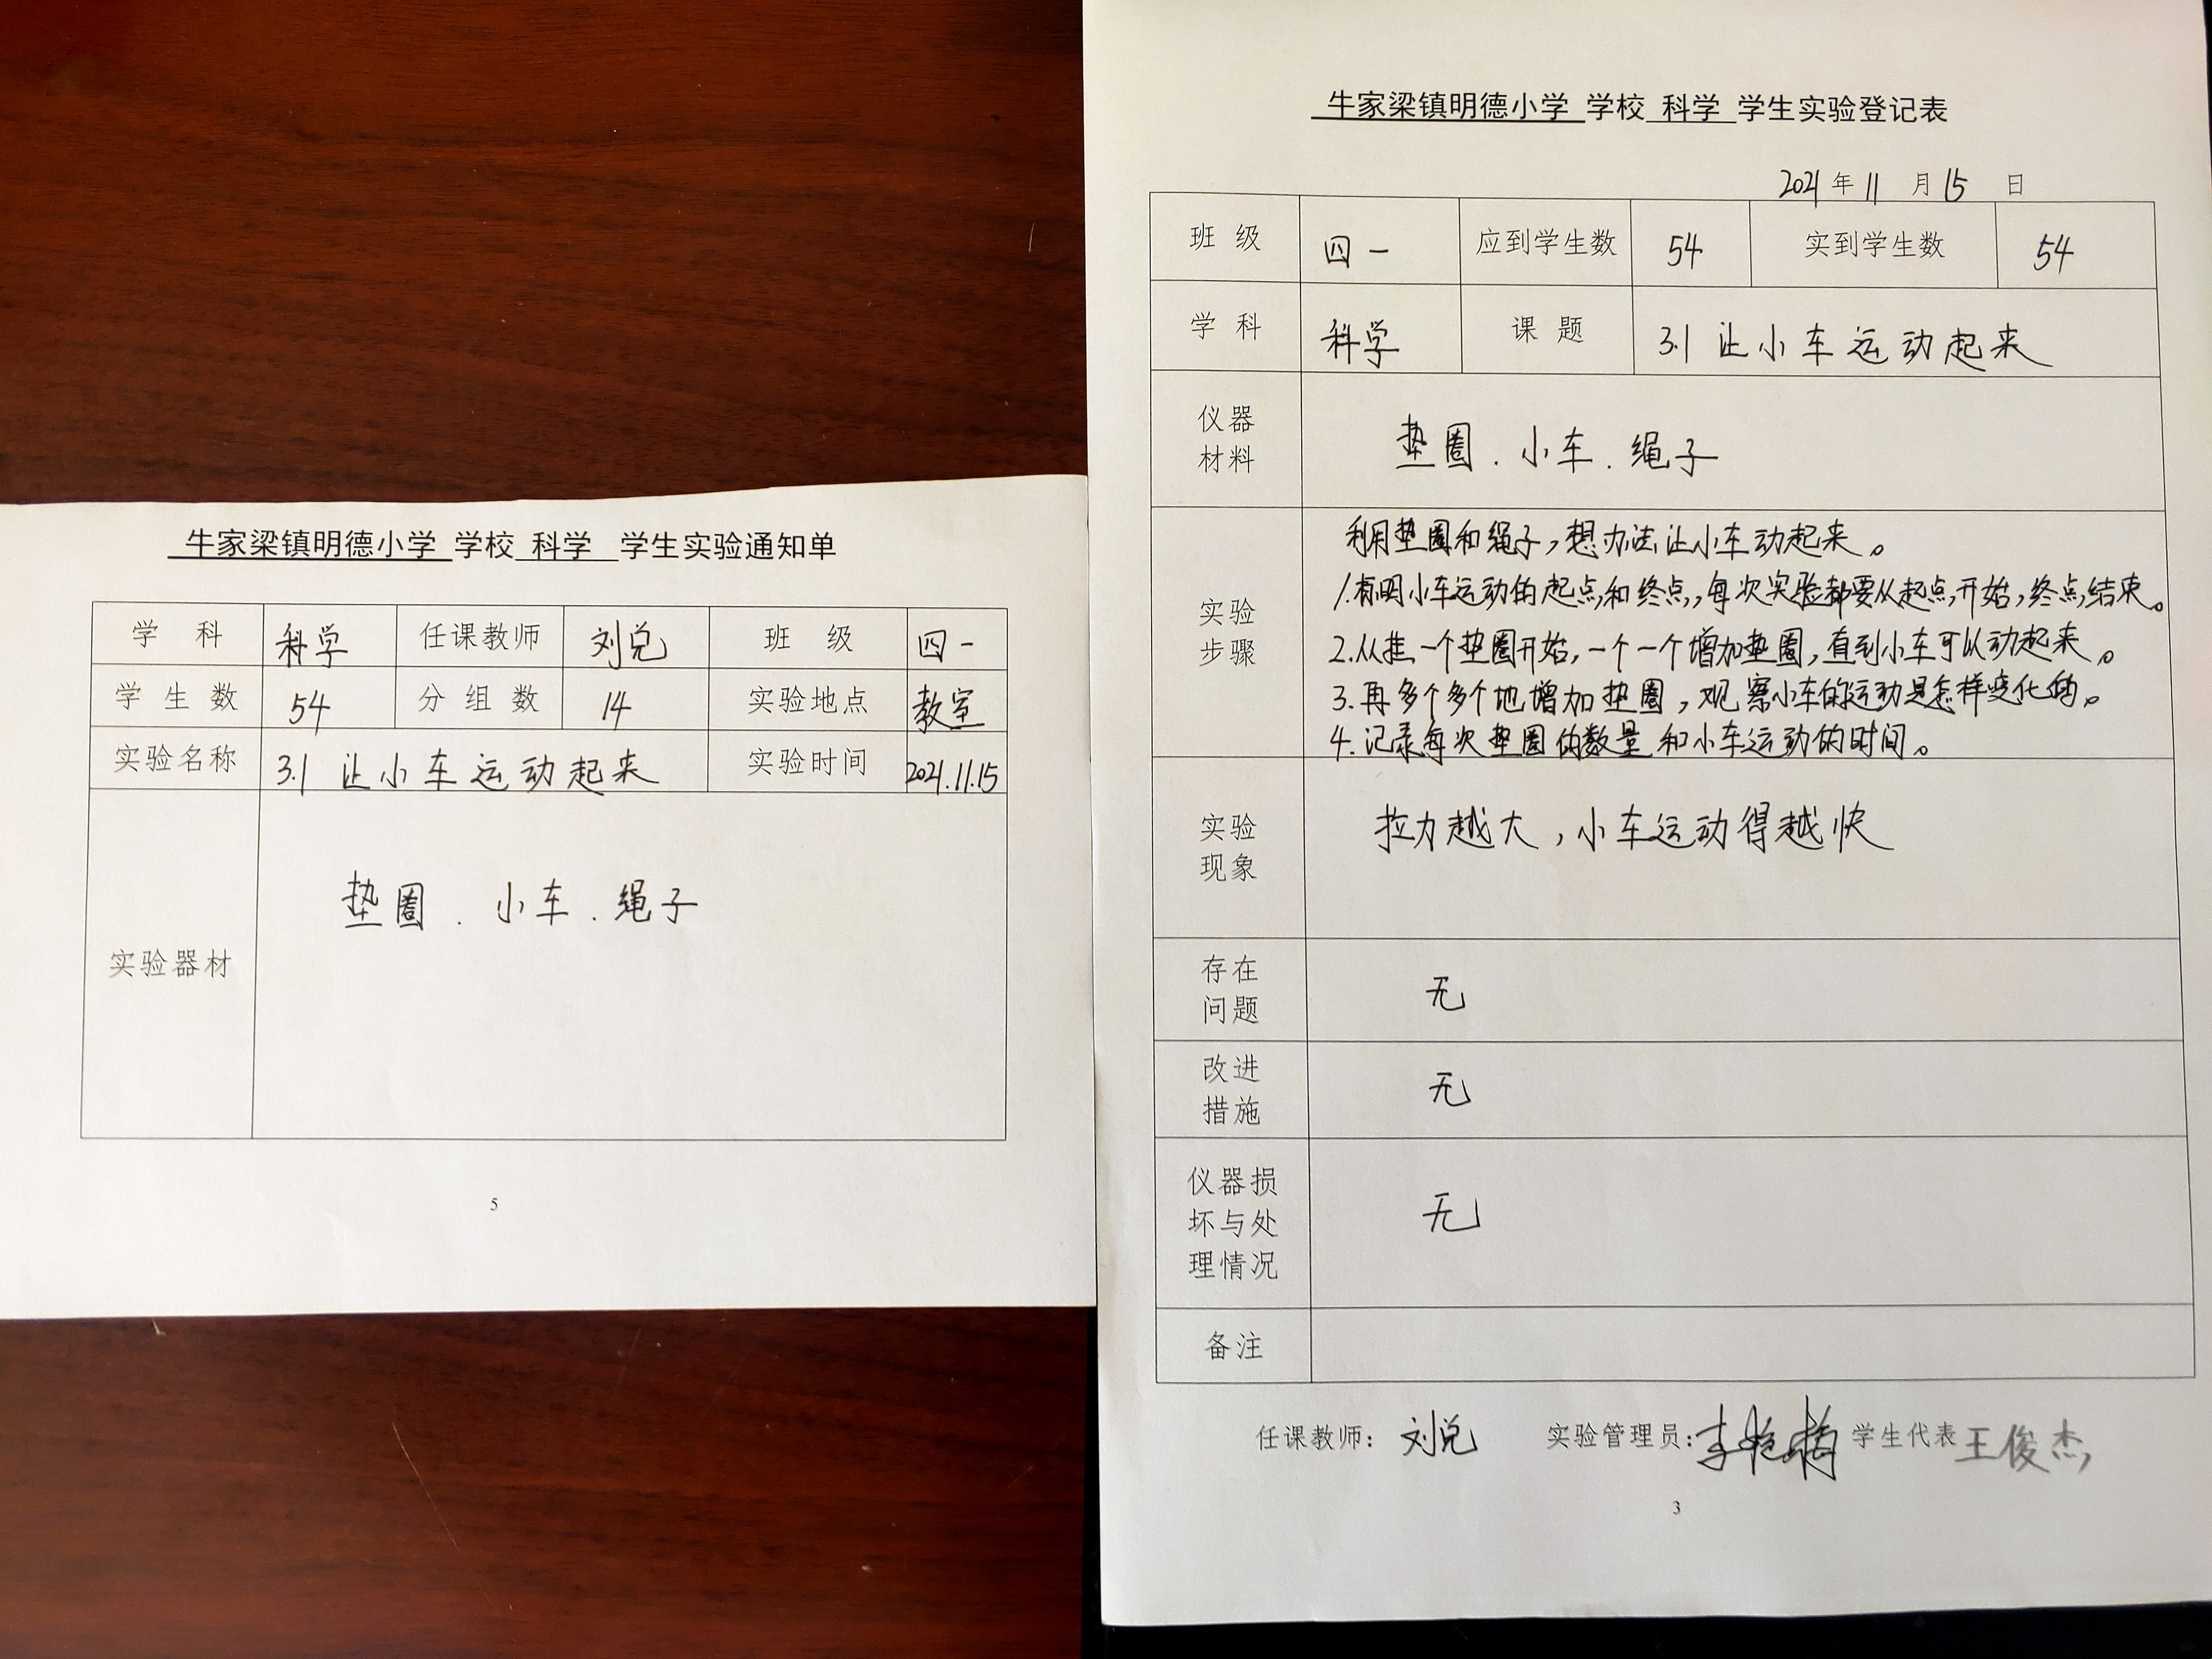 牛家梁镇明德小学 学校 科学 学生实验通知单
学 科 科学 任课教师 刘兑 班 级 四一
学 生 数 54 分 组 数 14 实验地点 教室
实验名称 3.1 让小车运动起来 实验时间 2021.11.15
实验器材
垫圈 . 小车 . 绳子
5
牛家梁镇明德小学 学校 科学 学生实验登记表
2021 年 11 月 15 日
班 级 四一 应到学生数 54 实到学生数 54
学 科 科学 课 题 3.1 让小车运动起来
仪器
材料
垫圈 . 小车 . 绳子
实验
步骤
利用垫圈和绳子,想办法让小车动起来。
1.标明小车运动的起点和终点,每次实验都要从起点开始,终点结束。
2.从挂一个垫圈开始,一个一个增加垫圈,直到小车可以动起来。
3.再多个多个地增加垫圈,观察小车的运动是怎样变化的。
4.记录每次垫圈的数量和小车运动的时间。
实验
现象
拉力越大,小车运动得越快
存在
问题
无
改进
措施
无
仪器损
坏与处
理情况
无
备注
任课教师: 刘兑 实验管理员: 学生代表 王俊杰
3